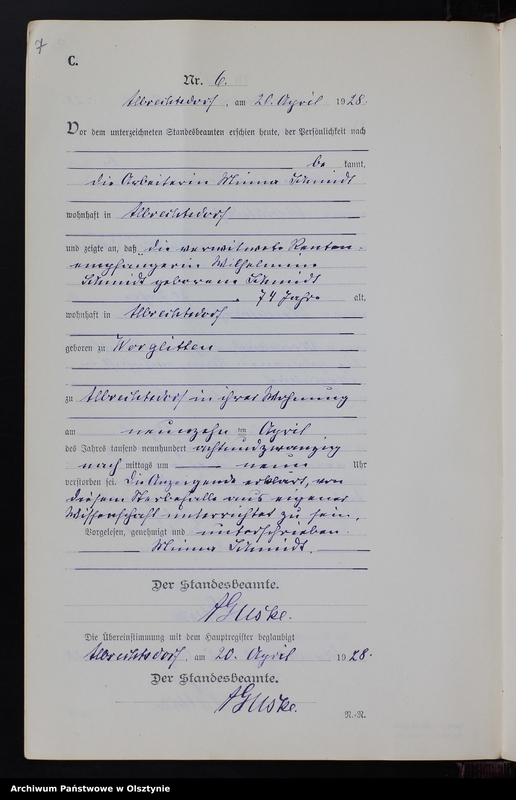 7
C.
Nr. 6.
Albrechtsdorf, am 20. April 1928.
Vor dem unterzeichneten Standesbeamten erschien heute, der Persönlichkeit nach
be kannt,
die Arbeiterin Minna Schmidt
wohnhaft in Albrechtsdorf
und zeigte an, daß die verwitwete Renten-
empfängerin Wilhelmine
Schmidt geborene Schmidt
74 Jahre alt,
wohnhaft in Albrechtsdorf
geboren zu Worglitten
zu Albrechtsdorf in ihrer Wohnung
am neunzehn ten April
des Jahres tausend neunhundert achtundzwanzig
nach mittags um neun Uhr
verstorben sei. Die Anzeigende erklärt, von
diesem Sterbefalle aus eigener
Wissenschaft unterrichtet zu sein.
Vorgelesen, genehmigt und unterschrieben.
Minna Schmidt.
Der Standesbeamte.
Guske.
Die Übereinstimmung mit dem Hauptregister beglaubigt
Albrechtsdorf, am 20. April 1928.
Der Standesbeamte.
Guske.
R.-R.
Archiwum Państwowe w Olsztynie